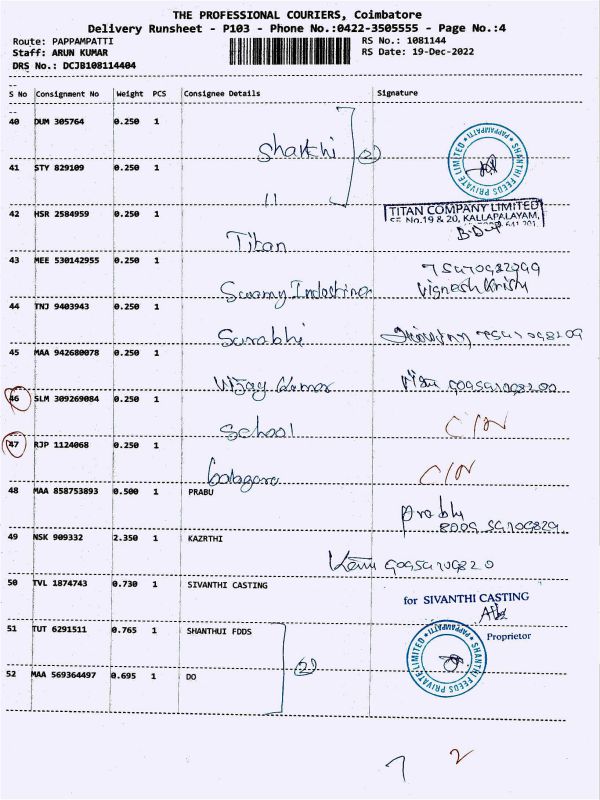 THE PROFESSIONAL COURIERS, Coimbatore
Delivery Runsheet - P103 - Phone No.:0422-3505555 - Page No.:4
Route: PAPPAMPATTI RS No.: 1081144
Staff: ARUN KUMAR RS Date: 19-Dec-2022
DRS No.: DCJB108114404
S No Consignment No Weight PCS Consignee Details Signature
40 DUM 305764 0.250 1
Shakthi (2)
SHANTHI FEEDS PRIVATE LIMITED * PAPPAMPATTI *
41 STY 829109 0.250 1
11
42 HSR 2584959 0.250 1
TITAN COMPANY LIMITED
SF No.19 & 20, KALLAPALAYAM,
641 201
Titan
43 MEE 530142955 0.250 1
Swamy
Vignesh Krish
44 TNJ 9403943 0.250 1
Surabhi
45 MAA 942680078 0.250 1
Vijay Kumar
46 SLM 309269084 0.250 1
School C/N
47 RJP 1124068 0.250 1
C/N
48 MAA 858753893 0.500 1 PRABU
Prabhu
49 NSK 909332 2.350 1 KAZRTHI
50 TVL 1874743 0.730 1 SIVANTHI CASTING
for SIVANTHI CASTING
Proprietor
51 TUT 6291511 0.765 1 SHANTHUI FDDS
(2)
SHANTHI FEEDS PRIVATE LIMITED * PAPPAMPATTI *
52 MAA 569364497 0.695 1 DO
7 2